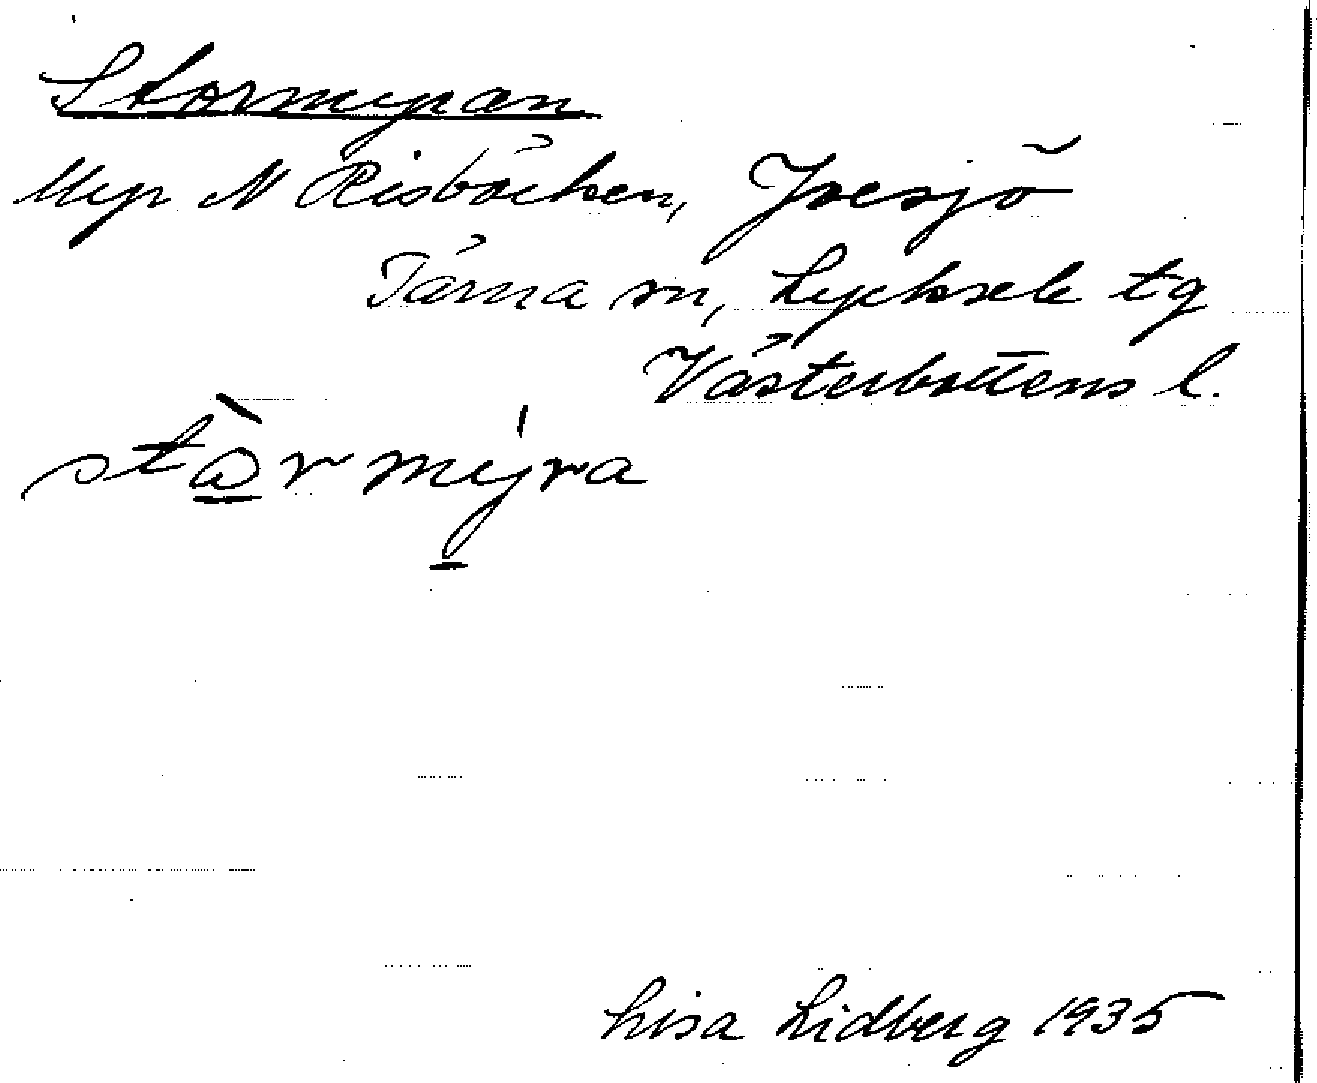 Stormyran
Myr N Risbäcken, Joesjö
Tärna sn, Lycksele tg
Västerbottens l.
stò̱r mýra
Lisa Lidberg 1935